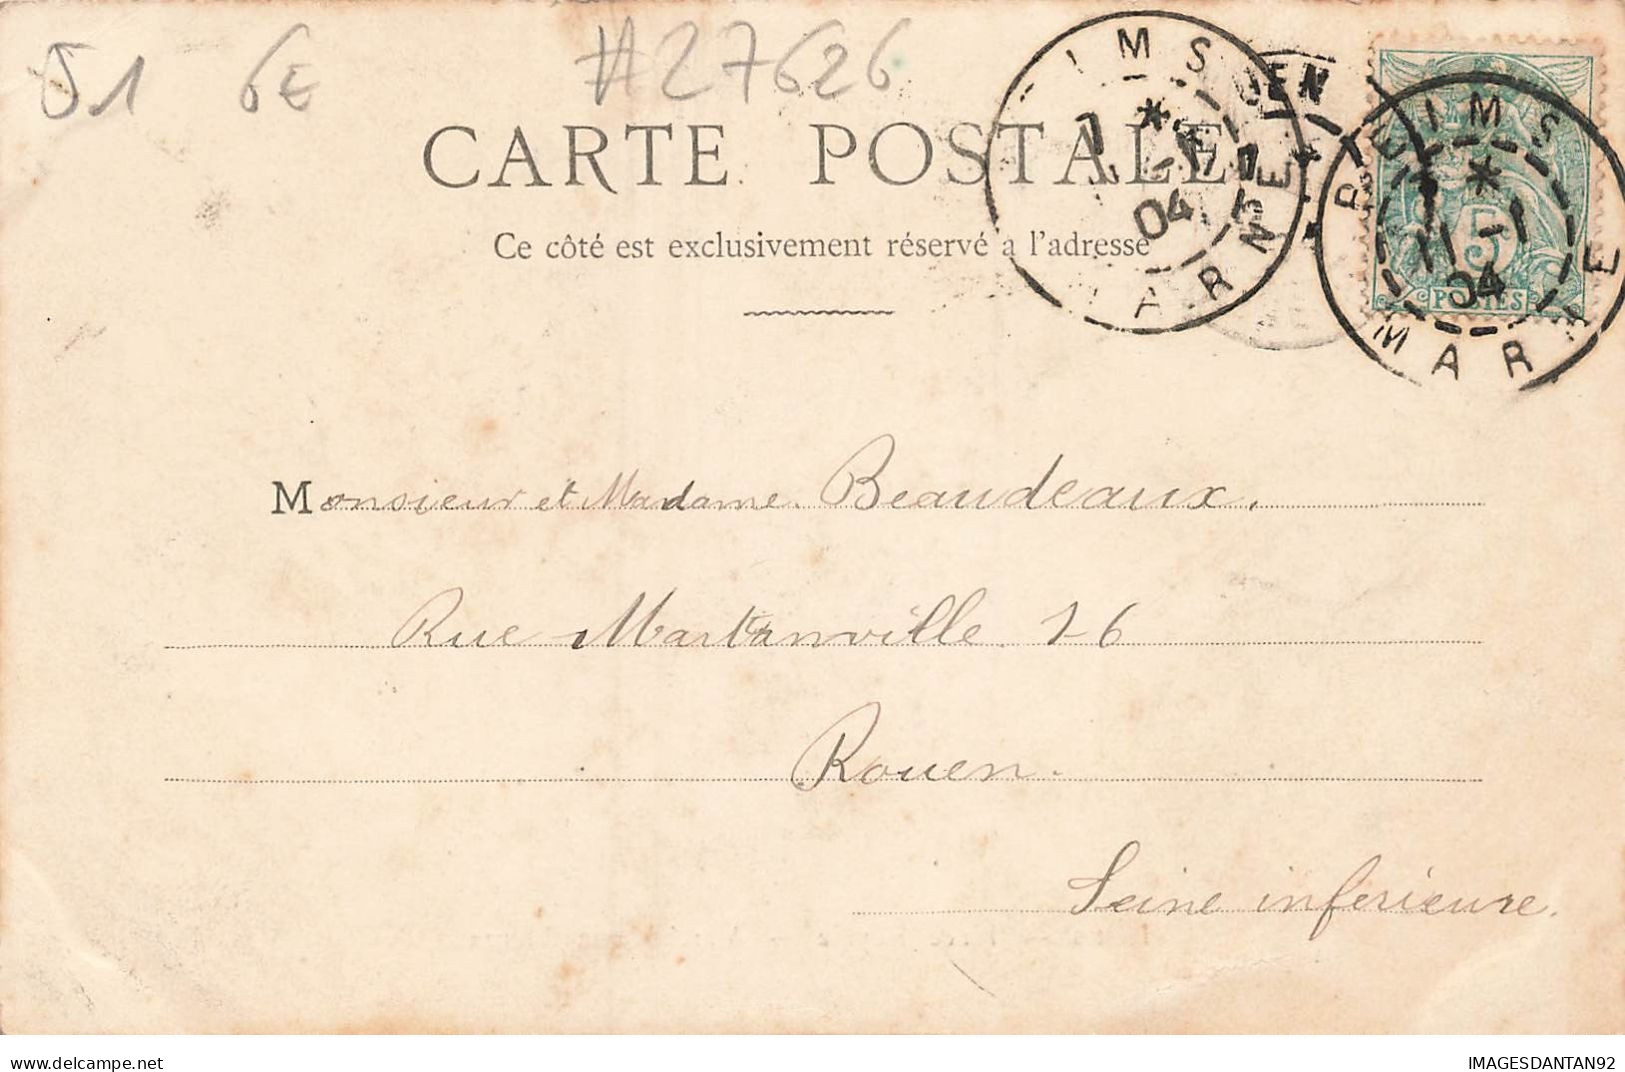 51 6E #27626
CARTE POSTALE
Ce côté est exclusivement réservé a l'adresse
REIMS
11 -1
04
MARNE
5
POSTES
IMS
04
ARNE
UEN
Monsieur et Madame. Beaudeaux.
Rue Martainville 16
Rouen.
Seine inferieure.
www.delcampe.net
IMAGESDANTAN92